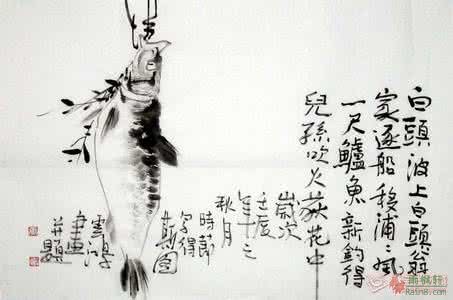 白頭波上白頭翁
家逐船移浦〻風
一尺鱸魚新釣得
兒孫吹火荻花中
歲次
壬辰
秋月
時節
写得
斯图
雲鴻
畫
并題
雨枫轩
Rain8.com